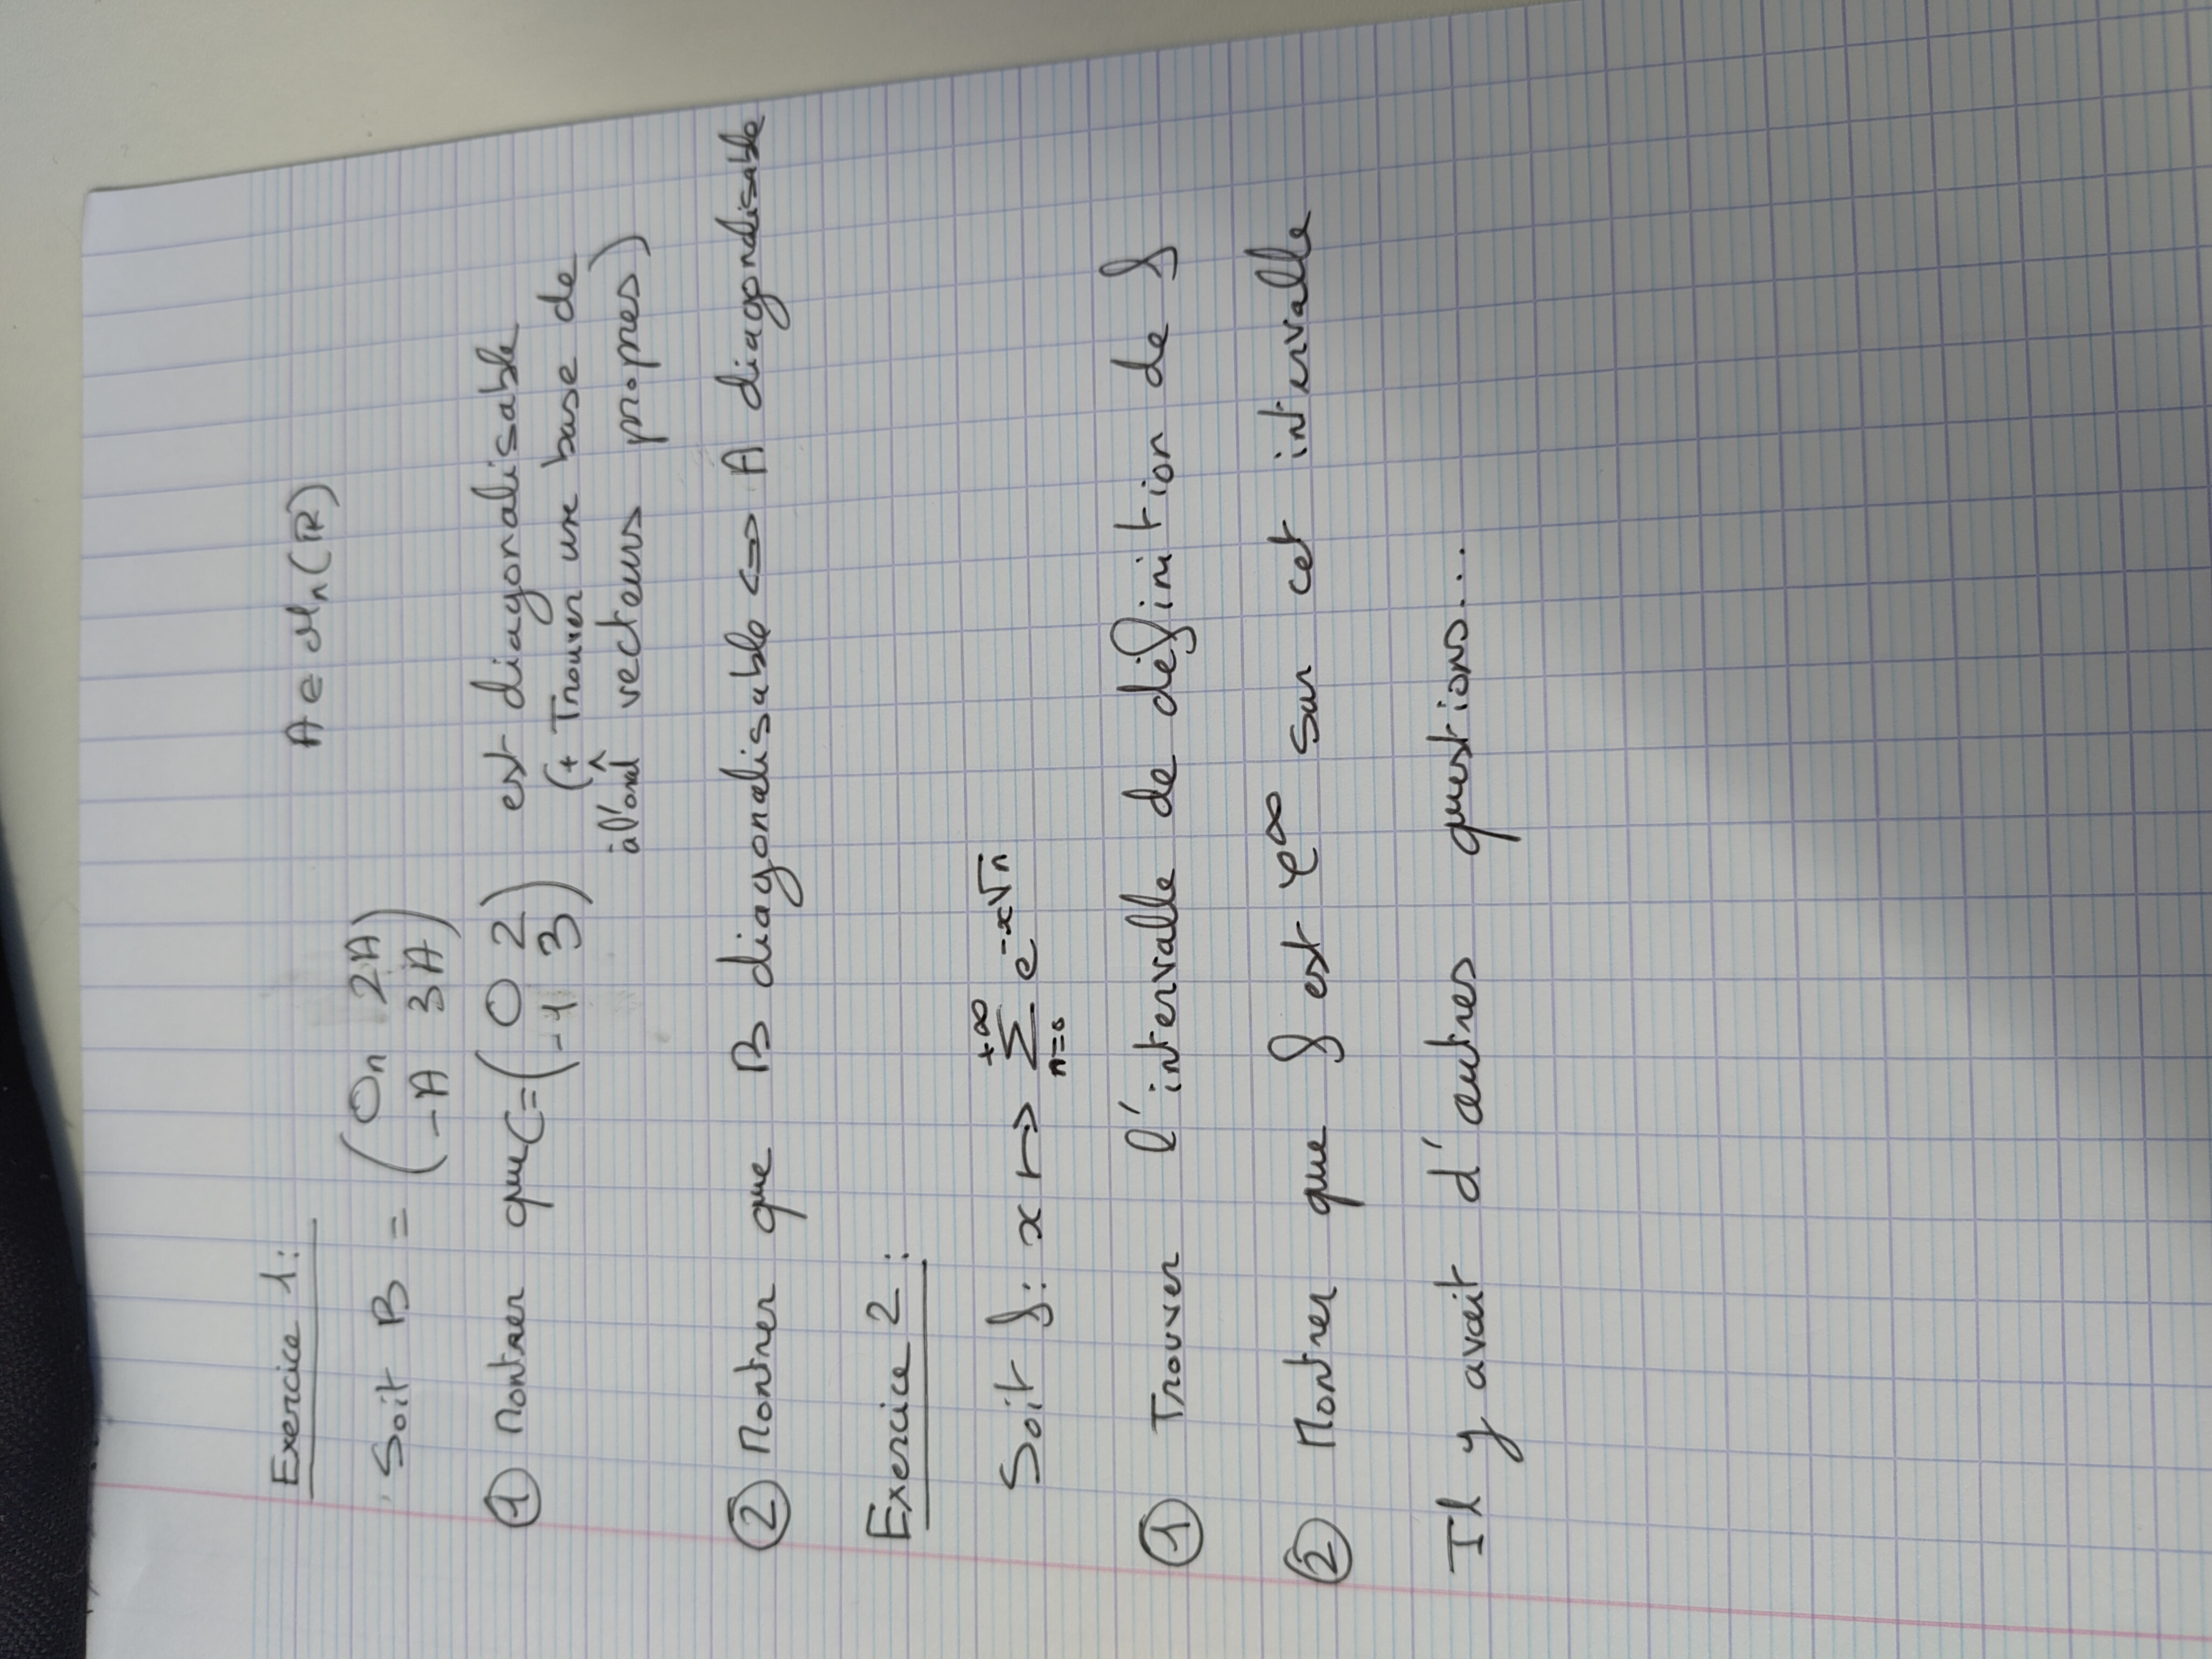 Exercice 1:
Soit B = ( 0n 2A      A ∈ Mn(ℝ)
-A 3A )
① Montrer que C = ( 0 2 est diagonalisable
-1 3 ) (+ Trouver une base de
à l'oral vecteurs propres)
② Montrer que B diagonalisable <=> A diagonalisable
Exercice 2:
Soit f: x ↦ +∞ Σ n=0 e^-x√n
① Trouver l'intervalle de définition de f
② Montrer que f est C^∞ sur cet intervalle
Il y avait d'autres questions...